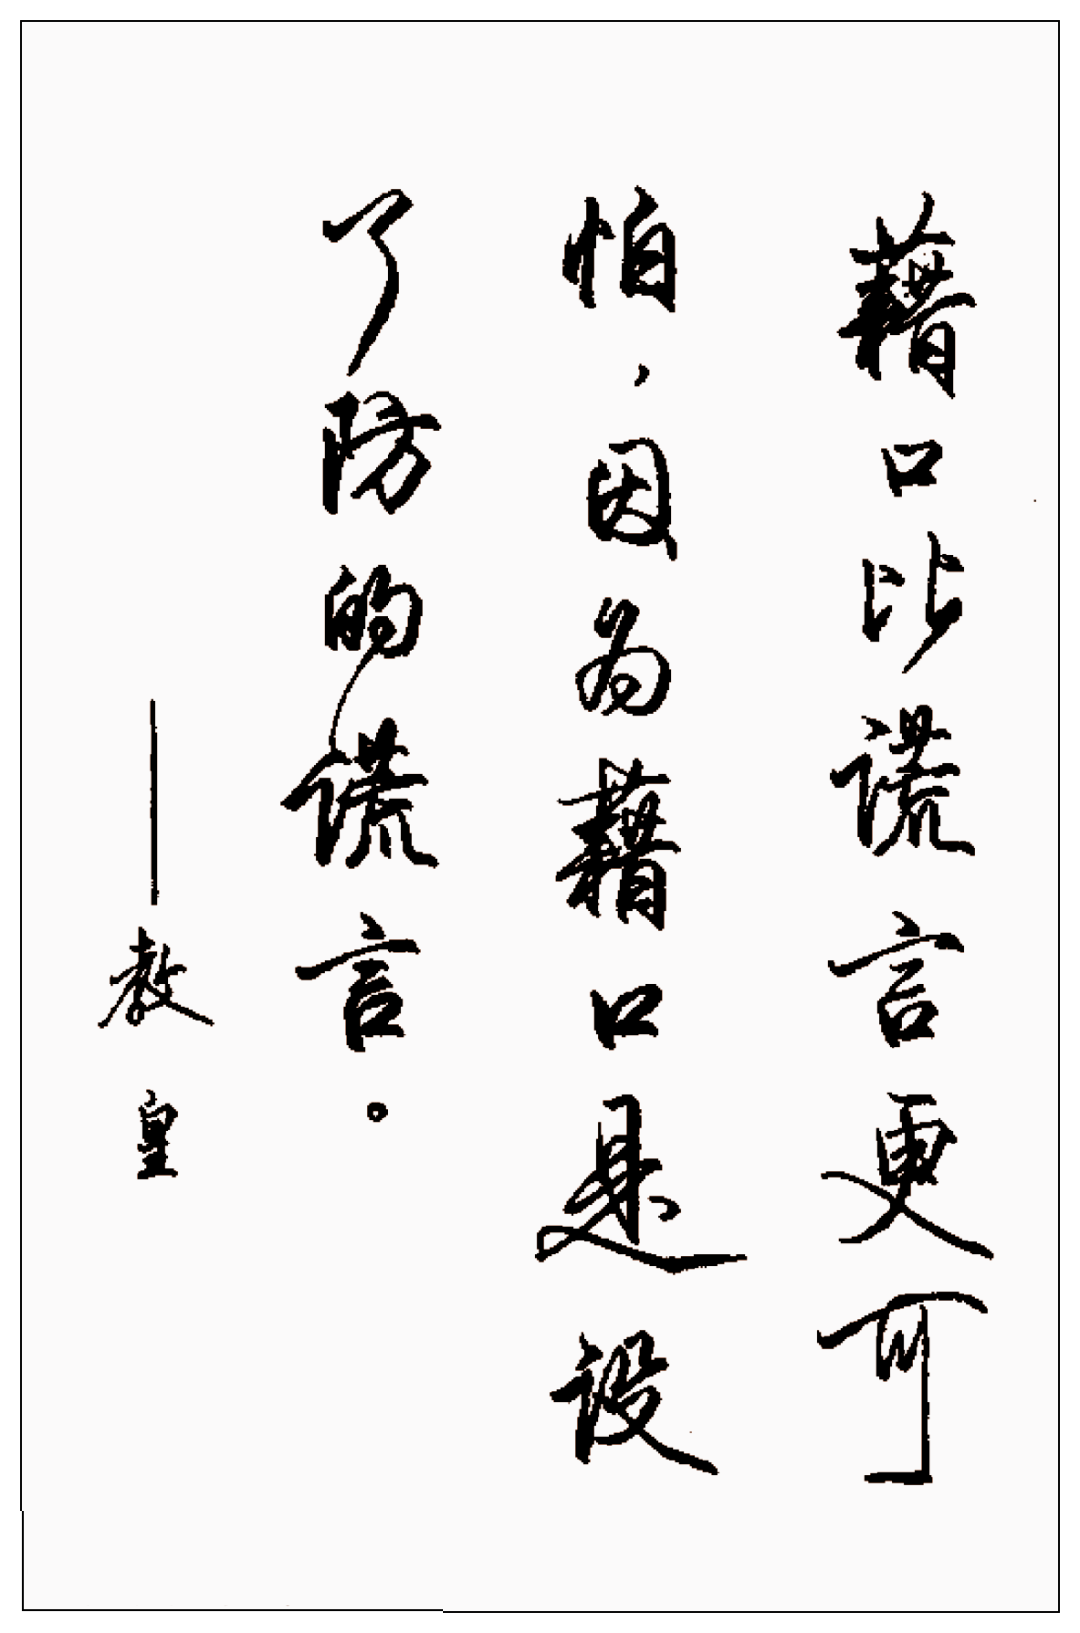 藉口比谎言更可
怕，因为藉口是设
了防的谎言。
——教皇